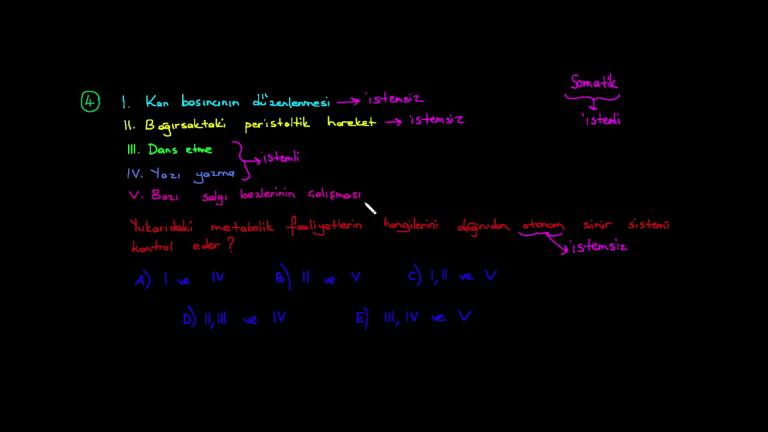 Somatik
istemli
4 I. Kan basıncının düzenlenmesi → istemsiz
II. Bağırsaktaki peristaltik hareket → istemsiz
III. Dans etme
→ istemli
IV. Yazı yazma
V. Bazı salgı bezlerinin çalışması
Yukarıdaki metabolik faaliyetlerin hangilerini doğrudan otonom sinir sistemi
kontrol eder?
→ istemsiz
A) I ve IV B) II ve V C) I, II ve V
D) II, III ve IV E) III, IV ve V